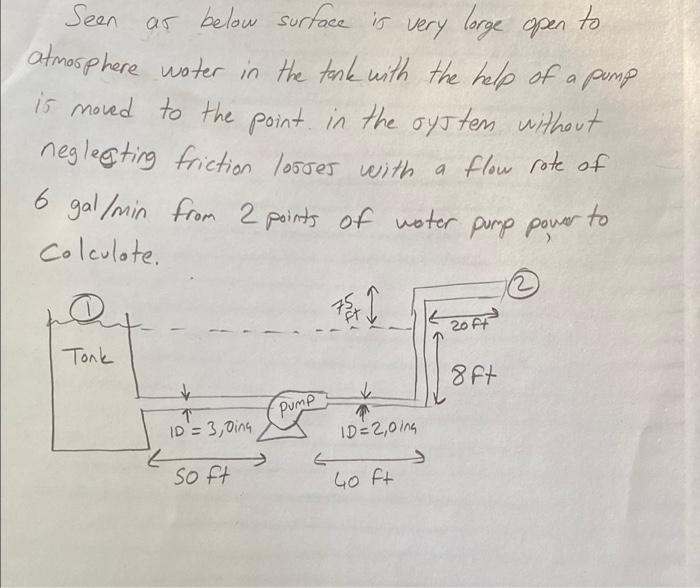 Seen as below surface is very large open to
atmosphere water in the tank with the help of a pump
is moved to the point in the system without
neglecting friction losses with a flow rate of
6 gal/min from 2 points of water pump power to
Calculate.
1
2
75 ft
20 ft
Tank
8 ft
PUMP
ID = 3,0 inq
ID = 2,0 inq
50 ft
40 ft